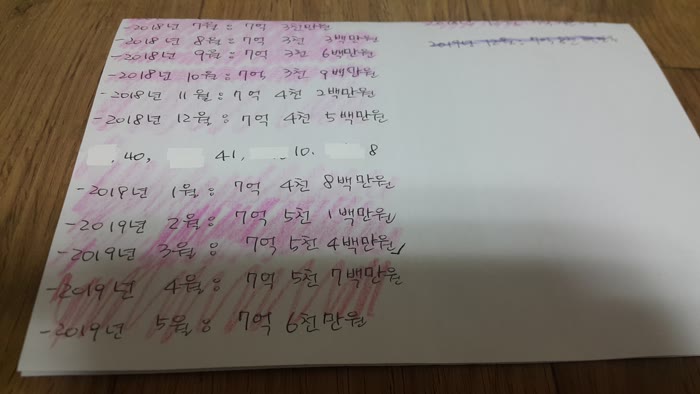 -2018년 7월 : 7억 3천만원
-2018년 8월 : 7억 3천 3백만원
-2018년 9월 : 7억 3천 6백만원
-2018년 10월 : 7억 3천 9백만원
-2018년 11월 : 7억 4천 2백만원
-2018년 12월 : 7억 4천 5백만원
, 40, 41, 10. 8
-2018년 1월 : 7억 4천 8백만원
-2019년 2월 : 7억 5천 1백만원
-2019년 3월 : 7억 5천 4백만원
-2019년 4월 : 7억 5천 7백만원
-2019년 5월 : 7억 6천만원